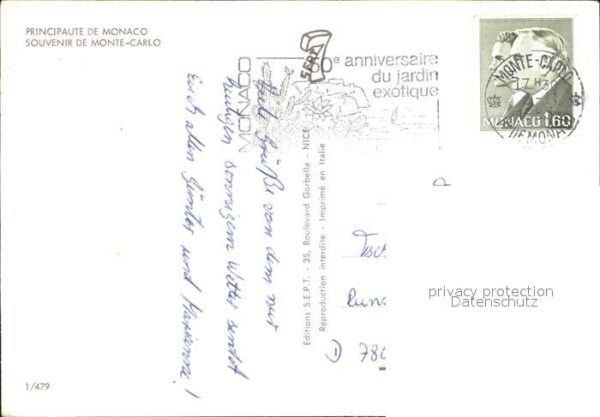 PRINCIPAUTE DE MONACO
SOUVENIR DE MONTE-CARLO
MONACO
50e anniversaire
du jardin
exotique
MONTE-CARLO
17H30
Pₑ DE MONACO
MONACO 1,60
Viele Grüße von dem nur
heutigen sonnigem Wetter sendet
Euch allen Günter und Marianne!
Editions S.E.P.T. - 35, Boulevard Gorbella - NICE
Reproduction interdite - Imprimé en Italie
privacy protection
Datenschutz
1/479